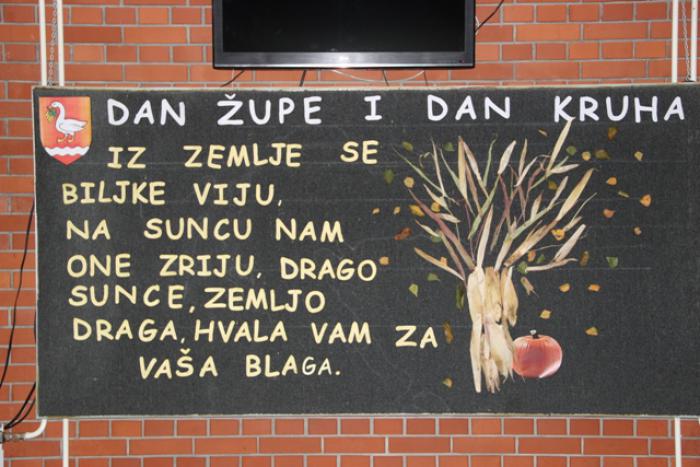 DAN ŽUPE I DAN KRUHA
IZ ZEMLJE SE
BILJKE VIJU,
NA SUNCU NAM
ONE ZRIJU. DRAGO
SUNCE, ZEMLJO
DRAGA, HVALA VAM ZA
VAŠA BLAGA.